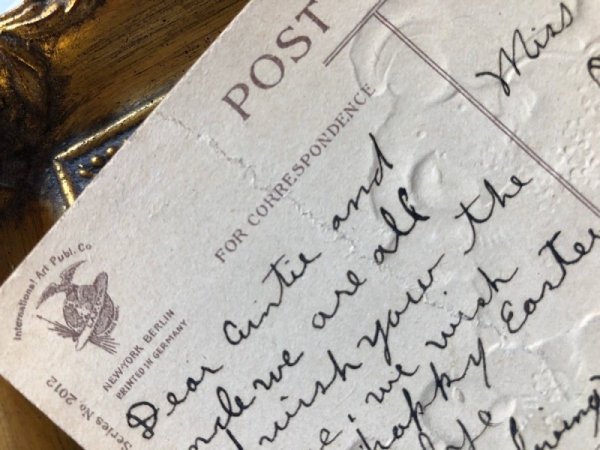 POST
Miss
FOR CORRESPONDENCE
International Art Publ. Co
NEW-YORK BERLIN
PRINTED IN GERMANY
Series No 2012
Dear Auntie and
we are all
wish your the
we wish
happy Easter